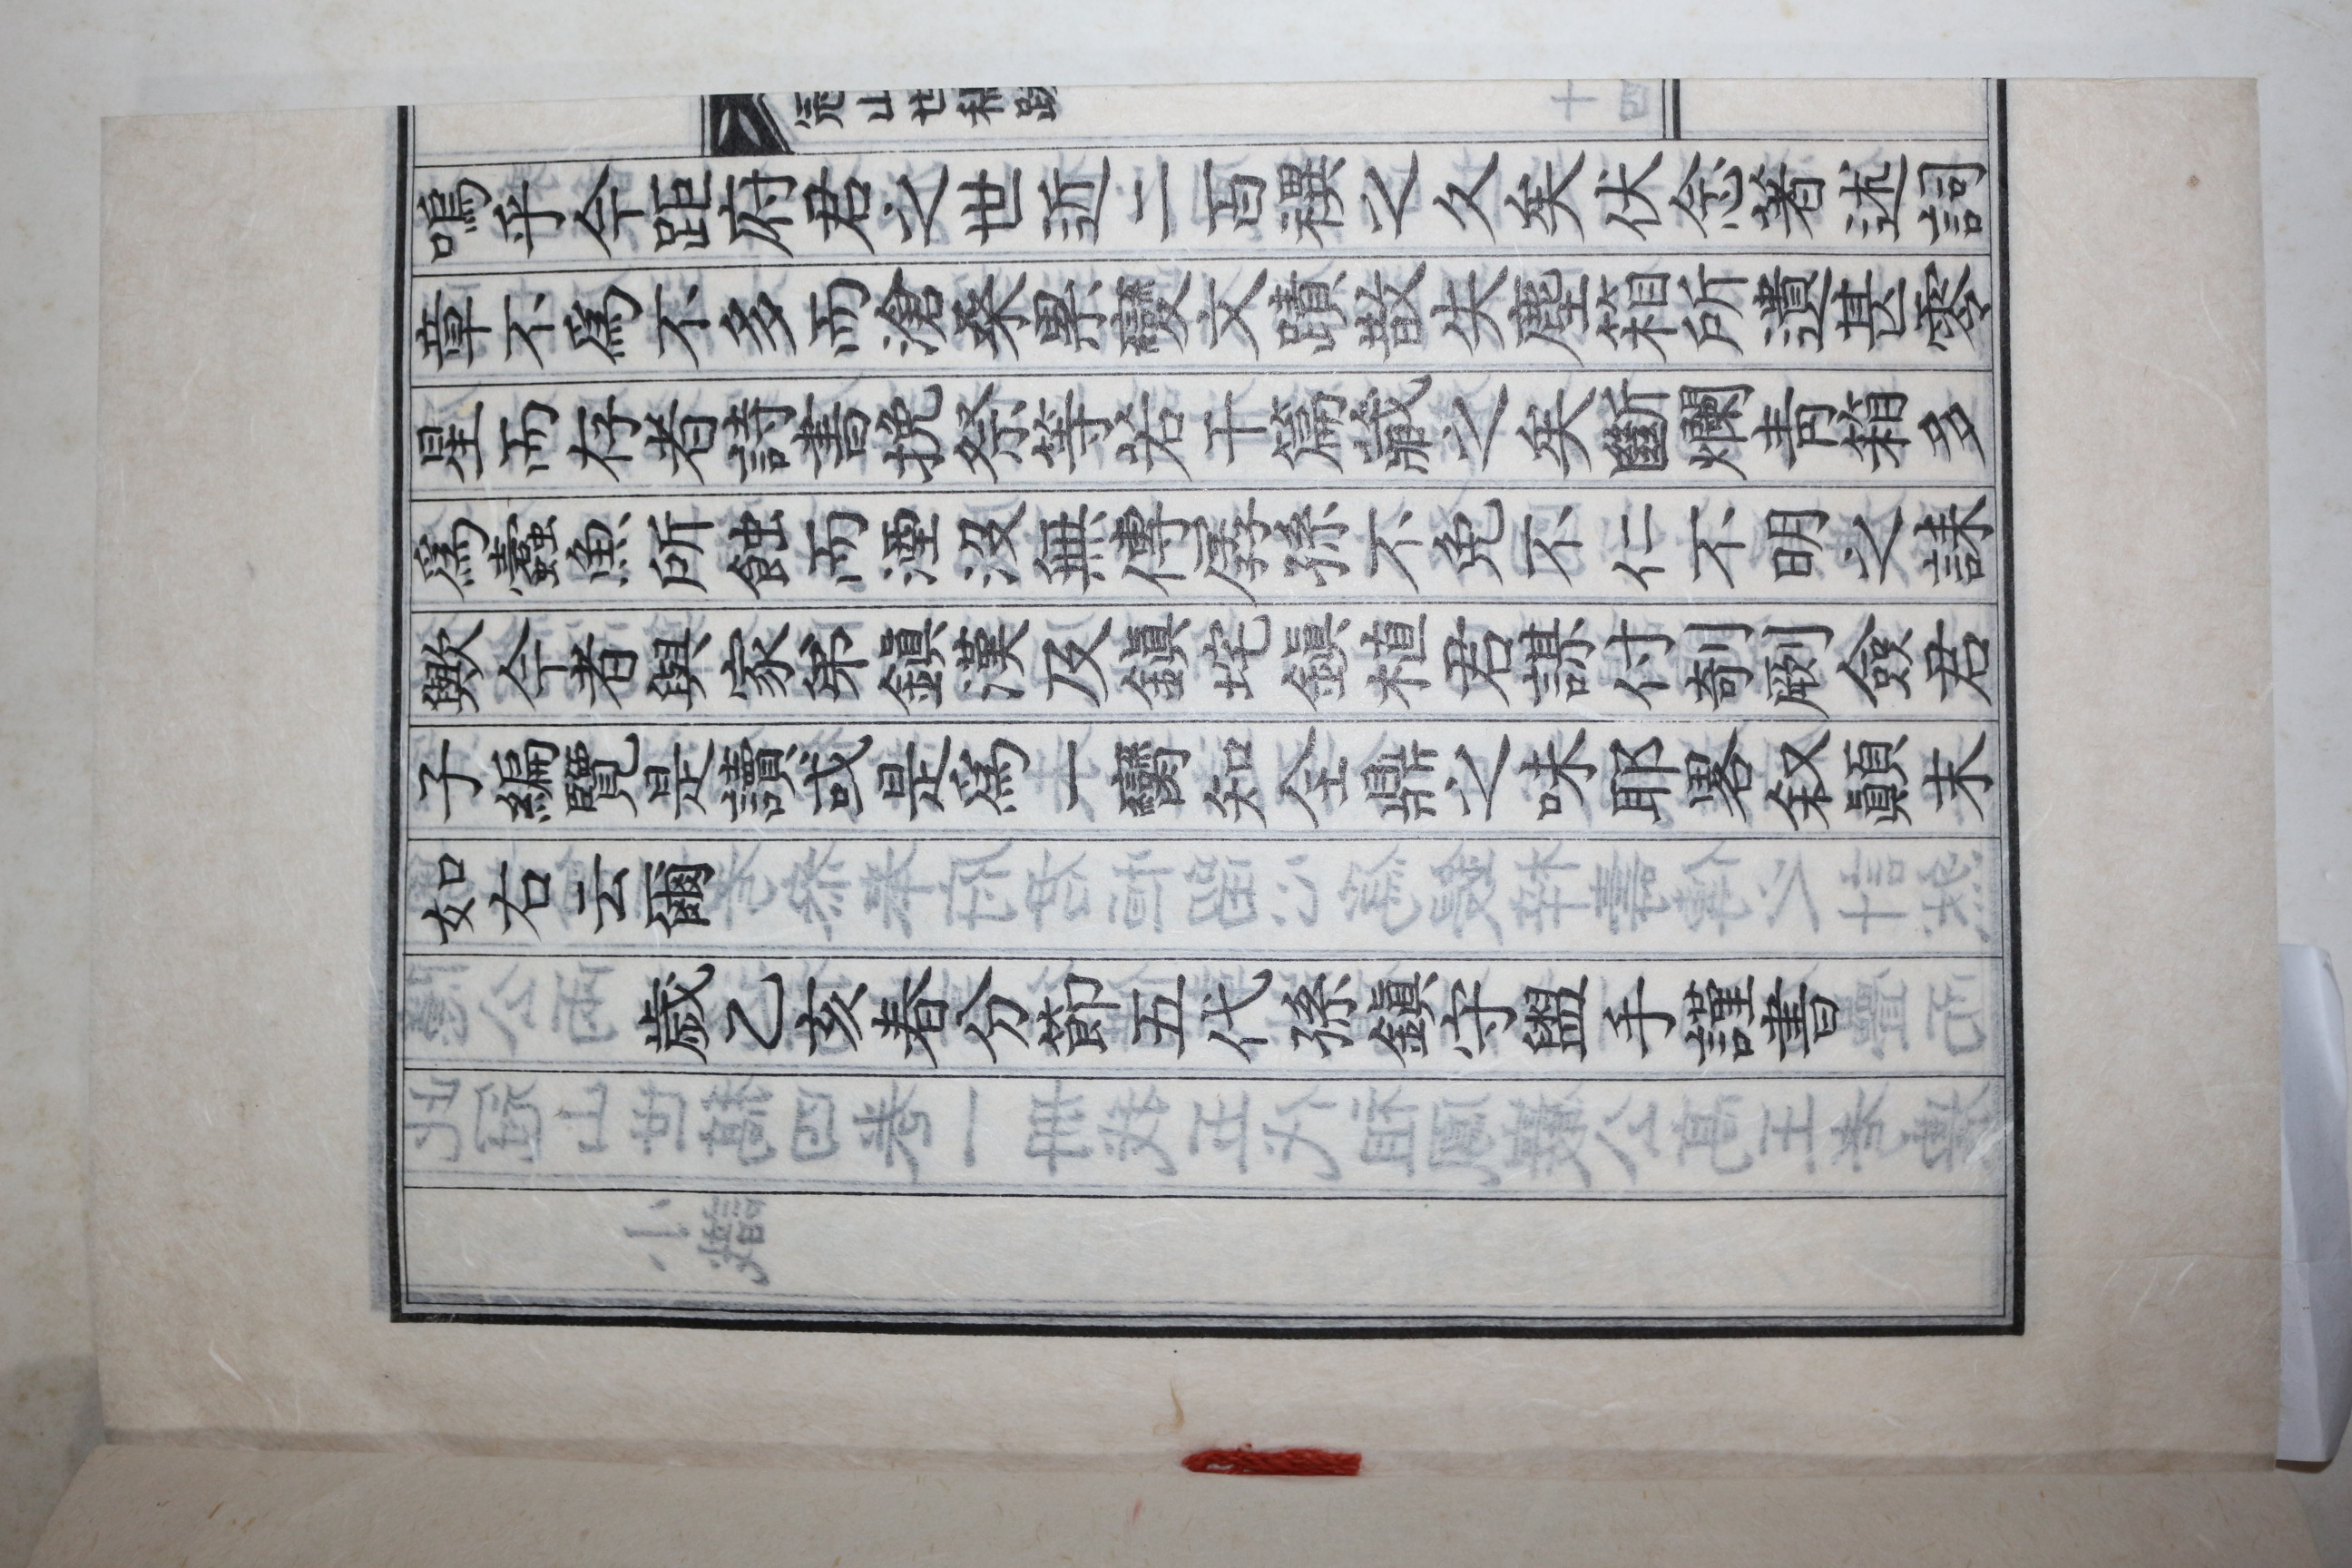 冠山世稿跋
嗚乎今距府君之世近二百禩之久矣伏念著述詞
章不爲不多而滄桑累變文蹟散失塵箱所遺甚零
星而存者詩書挽祭等若干篇藏之矣斷爛青箱多
爲蠹魚所蝕而湮没無傳孱孫不免不仁不明之誄
歟今者與家弟鎭漢及鎭垞鎭植君謀付剞劂僉君
子編覽是讀或是爲一臠知全鼎之味耶畧叙顚末
如右云爾
歲乙亥春分節五代孫鎭守盥手謹書